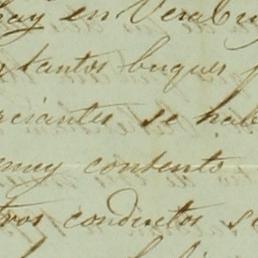 hay en Veracru
tantos buques p
ciantes se hal
muy contento
tros conductos se